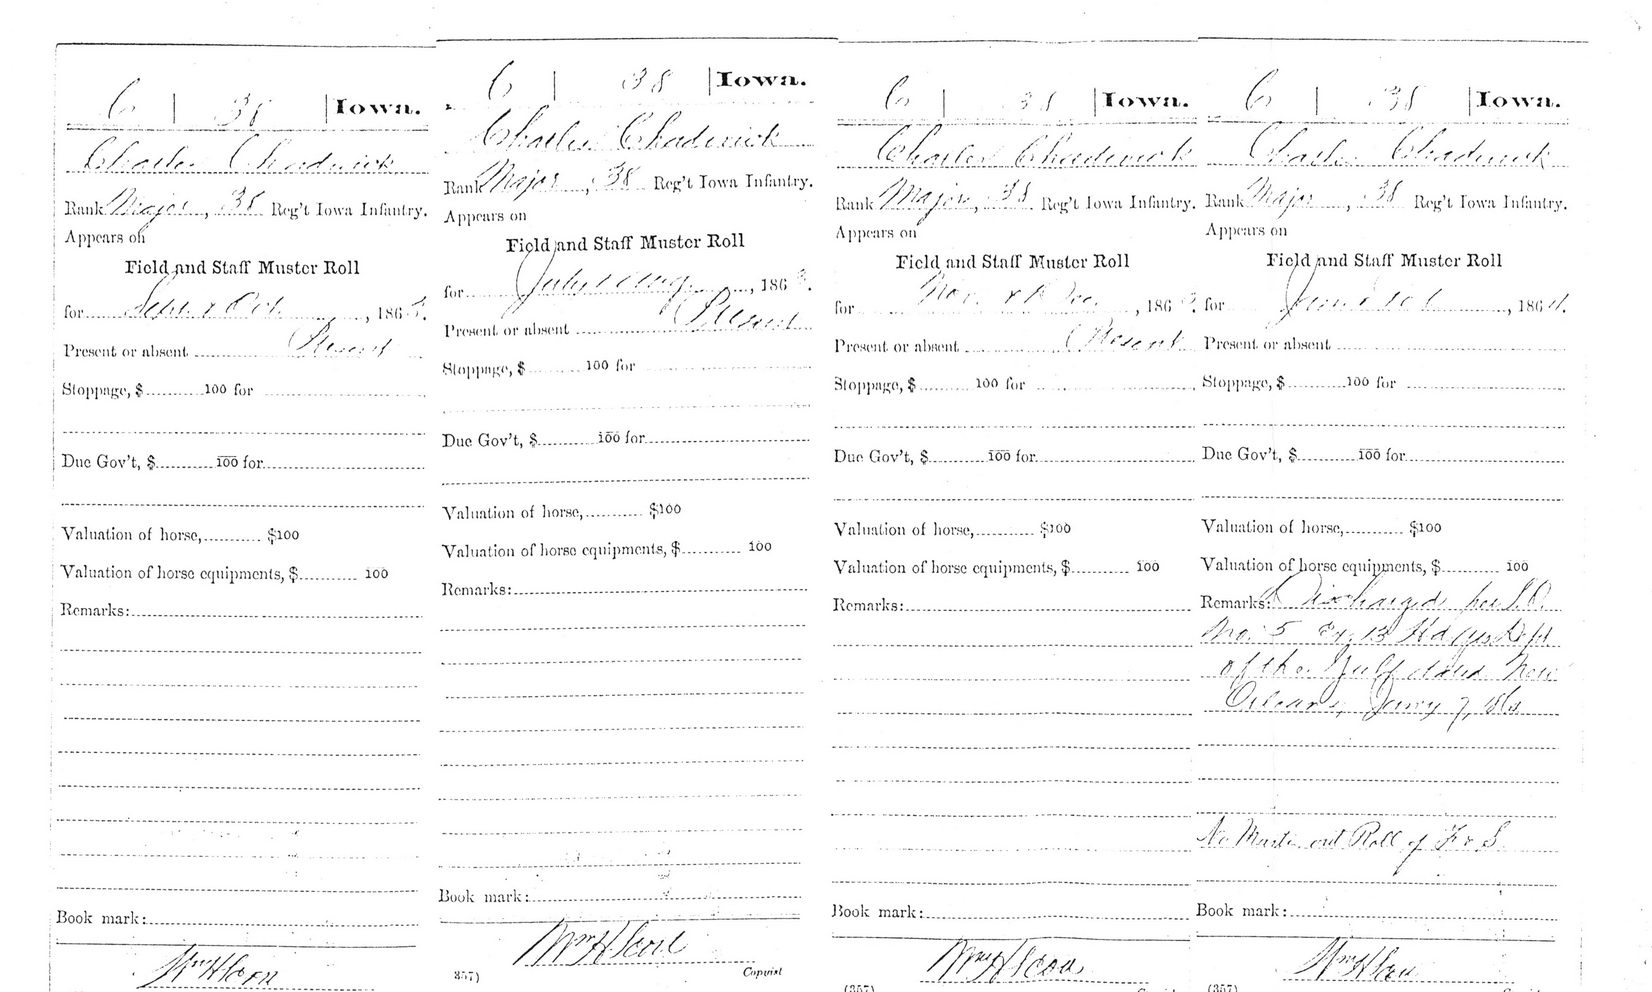 C | 38 | Iowa.
Charles Chadwick
Rank Major, 38 Reg't Iowa Infantry.
Appears on
Field and Staff Muster Roll
for Sept & Oct, 1863.
Present or absent Present
Stoppage, $ 100 for
Due Gov't, $ 100 for
Valuation of horse, $ 100
Valuation of horse equipments, $ 100
Remarks:
Book mark:
C | 38 | Iowa.
Charles Chadwick
Rank Major, 38 Reg't Iowa Infantry.
Appears on
Field and Staff Muster Roll
for July & Aug, 1863.
Present or absent Present
Stoppage, $ 100 for
Due Gov't, $ 100 for
Valuation of horse, $ 100
Valuation of horse equipments, $ 100
Remarks:
Book mark:
Wm H
357) Copyist
C | 38 | Iowa.
Charles Chadwick
Rank Major, 38 Reg't Iowa Infantry.
Appears on
Field and Staff Muster Roll
for Nov. & Dec., 1863.
Present or absent Present
Stoppage, $ 100 for
Due Gov't, $ 100 for
Valuation of horse, $ 100
Valuation of horse equipments, $ 100
Remarks:
Book mark:
Wm H
(357)
C | 38 | Iowa.
Charles Chadwick
Rank Major, 38 Reg't Iowa Infantry.
Appears on
Field and Staff Muster Roll
for Jan, 1864.
Present or absent
Stoppage, $ 100 for
Due Gov't, $ 100 for
Valuation of horse, $ 100
Valuation of horse equipments, $ 100
Remarks: Discharged per S.O.
No. 5 Ex. 13 Hd Qrs Dept
of the Gulf dated New
Orleans, Jany 7,
No Muster out Roll of F & S.
Book mark:
Wm H
(357)